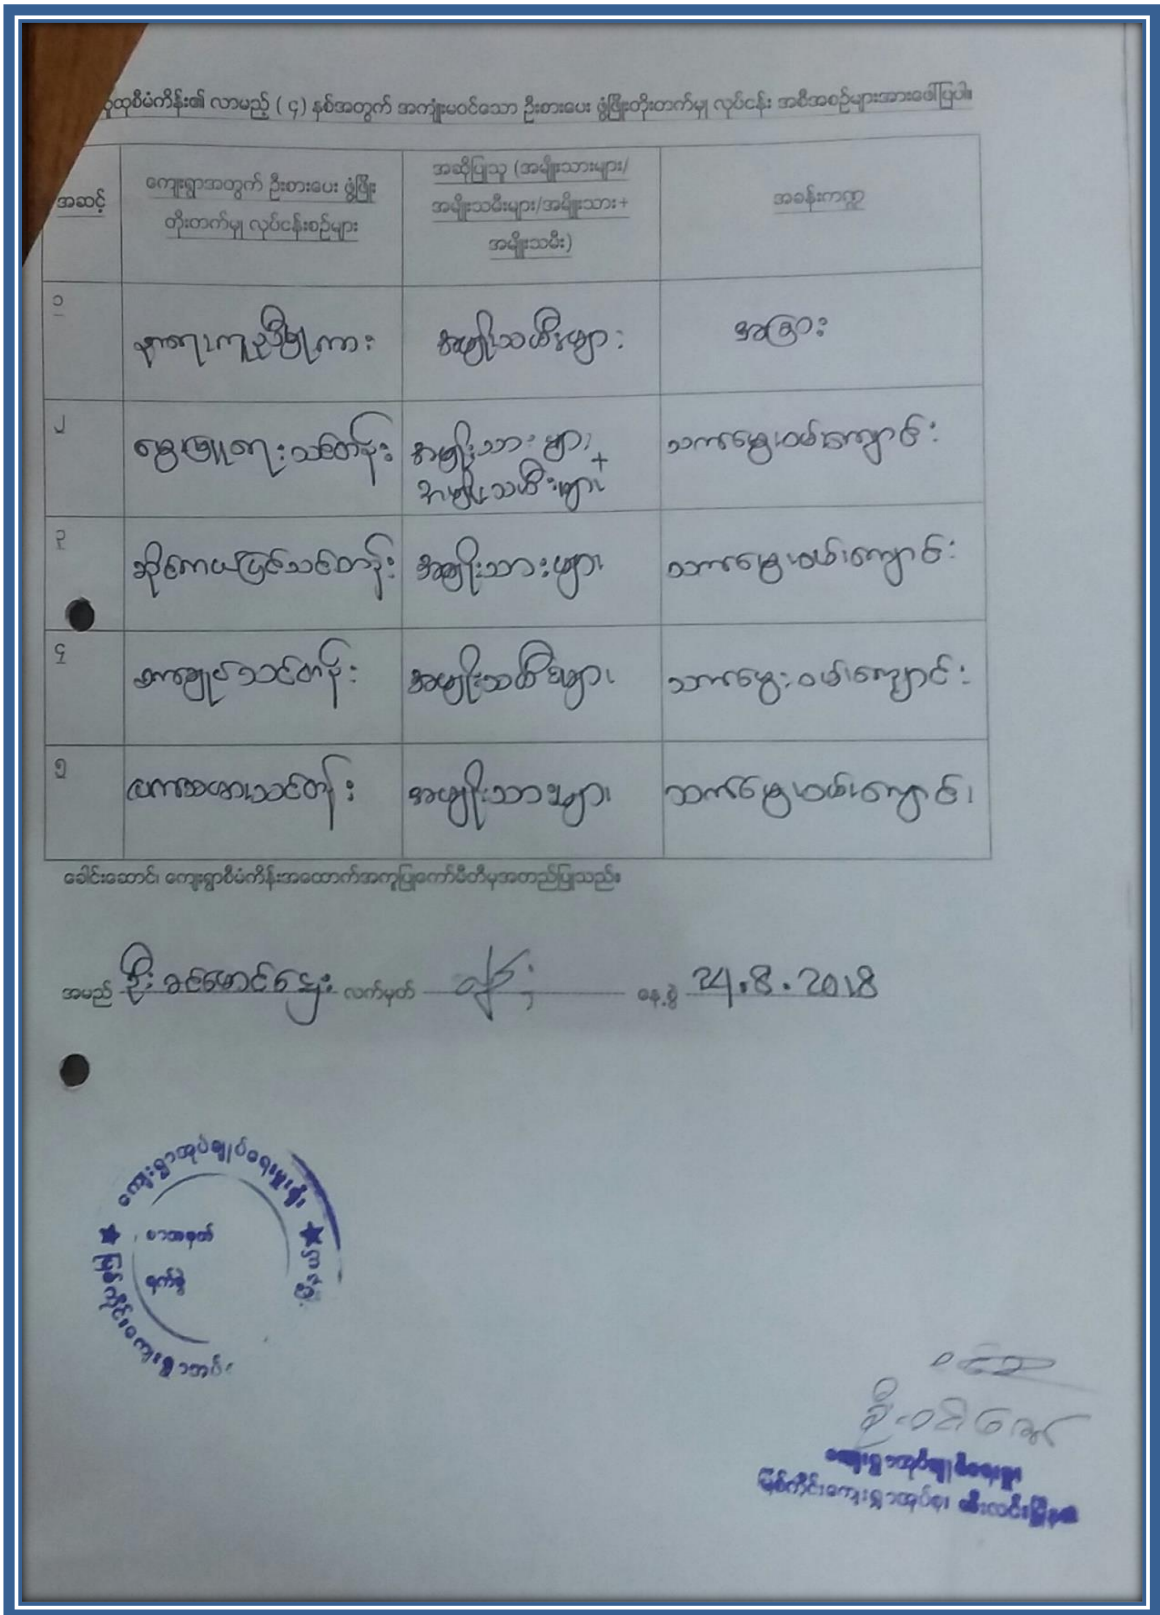 လူထုစီမံကိန်း၏ လာမည့် ( ၄ ) နှစ်အတွက် အကျုံးမဝင်သော ဦးစားပေး ဖွံ့ဖြိုးတိုးတက်မှု လုပ်ငန်း အစီအစဉ်များအားဖေါ်ပြပါ။
အဆင့်
ကျေးရွာအတွက် ဦးစားပေး ဖွံ့ဖြိုး
တိုးတက်မှု လုပ်ငန်းစဉ်များ
အဆိုပြုသူ (အမျိုးသားများ/
အမျိုးသမီးများ/အမျိုးသား+
အမျိုးသမီး)
အခန်းကဏ္ဍ
၁
အမျိုးသမီးများ
အခြား
၂
မွေးမြူရေးသင်တန်း
အမျိုးသားများ
+
အမျိုးသမီးများ
သက်မွေးဝမ်းကျောင်း
၃
ဆိုင်ကယ်ပြင်သင်တန်း
အမျိုးသားများ
သက်မွေးဝမ်းကျောင်း
၄
စက်ချုပ်သင်တန်း
အမျိုးသမီးများ
သက်မွေးဝမ်းကျောင်း
၅
လက်သမားသင်တန်း
အမျိုးသားများ
သက်မွေးဝမ်းကျောင်း
ခေါင်းဆောင်၊ ကျေးရွာစီမံကိန်းအထောက်အကူပြုကော်မီတီမှအတည်ပြုသည်။
အမည် ဦးခင်မောင်ဌေး လက်မှတ် နေ့စွဲ 24.8.2018
ကျေးရွာအုပ်ချုပ်ရေးမှူးရုံး
စာအမှတ်
ရက်စွဲ
မြစ်ကိုင်းကျေးရွာအုပ်စု
ကျေးရွာအုပ်ချုပ်ရေးမှူး
မြစ်ကိုင်းကျေးရွာအုပ်စု၊ ဇီးလင်းမြို့နယ်